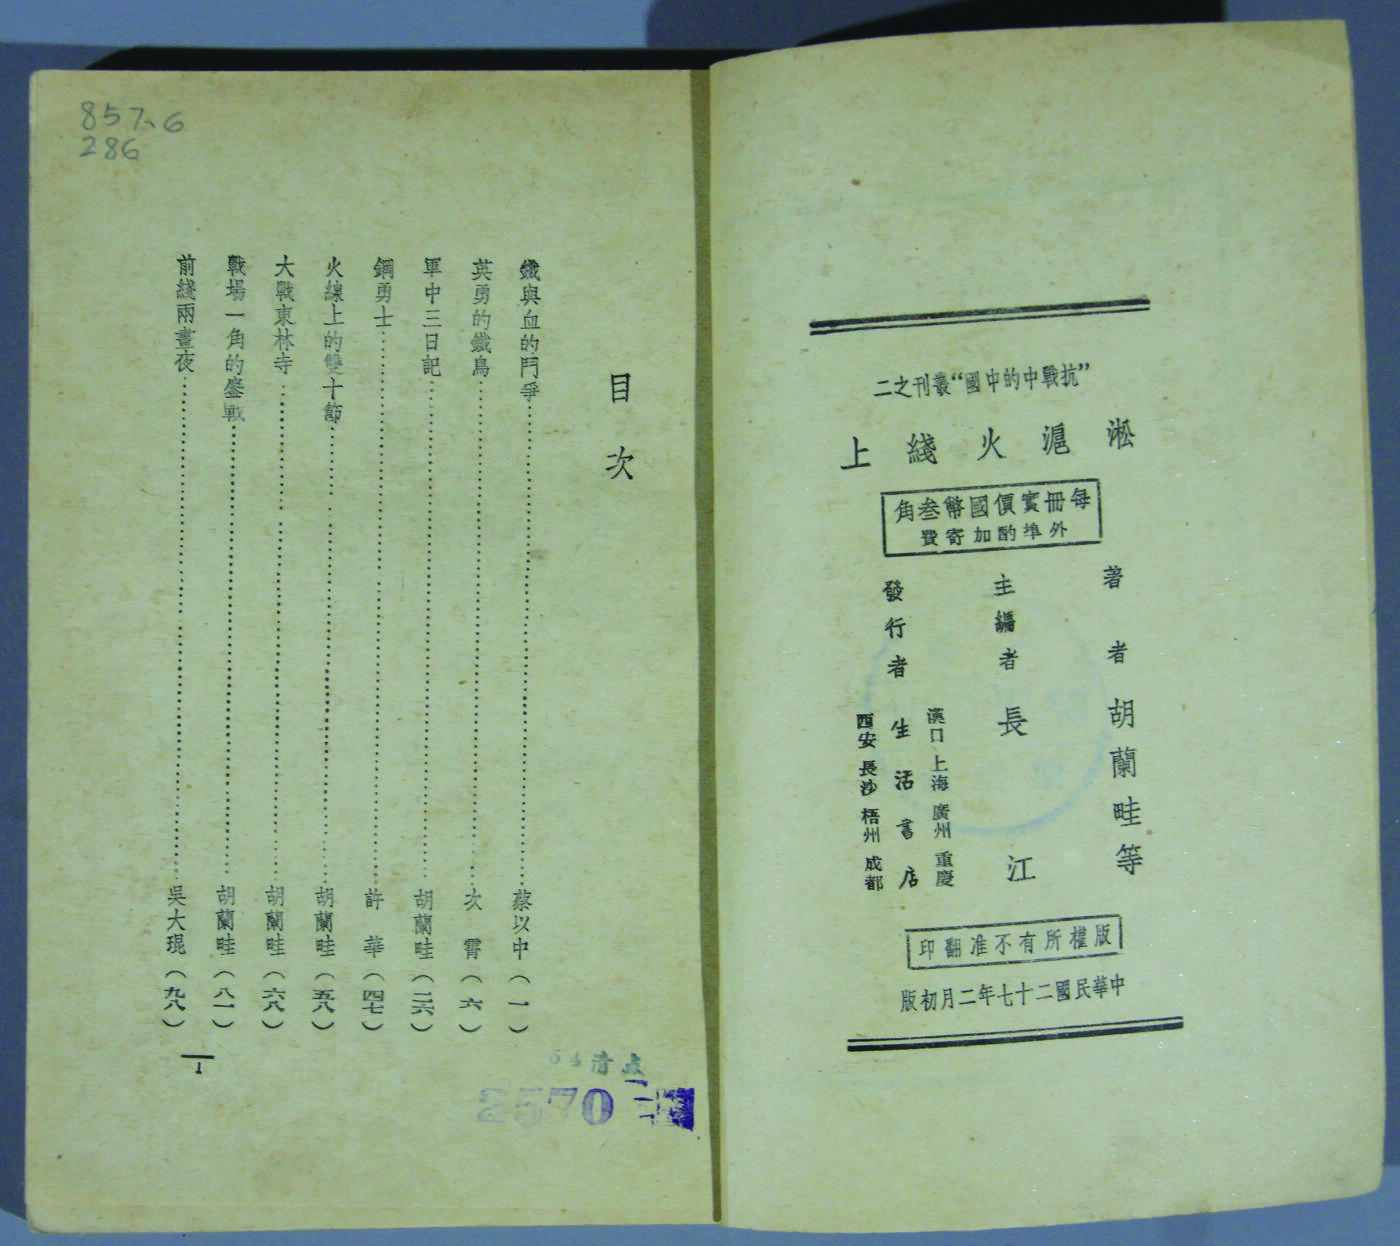 "抗戰中的中國"叢刊之二
淞滬火綫上
每冊實價國幣叁角
外埠酌加寄費
著者 胡蘭畦等
主編者 長江
發行者 生活書店
漢口 上海 廣州 重慶
西安 長沙 梧州 成都
版權所有不准翻印
中華民國二十七年二月初版
857.6
286
目次
鐵與血的鬥爭……蔡以中(一)
英勇的鐵鳥……次霄(六)
軍中三日記……胡蘭畦(二六)
鋼勇士……許華(四七)
火線上的雙十節……胡蘭畦(五八)
大戰東林寺……胡蘭畦(六八)
戰場一角的鏖戰……胡蘭畦(八一)
前綫兩晝夜……吳大琨(九八)
1
64清点
2570